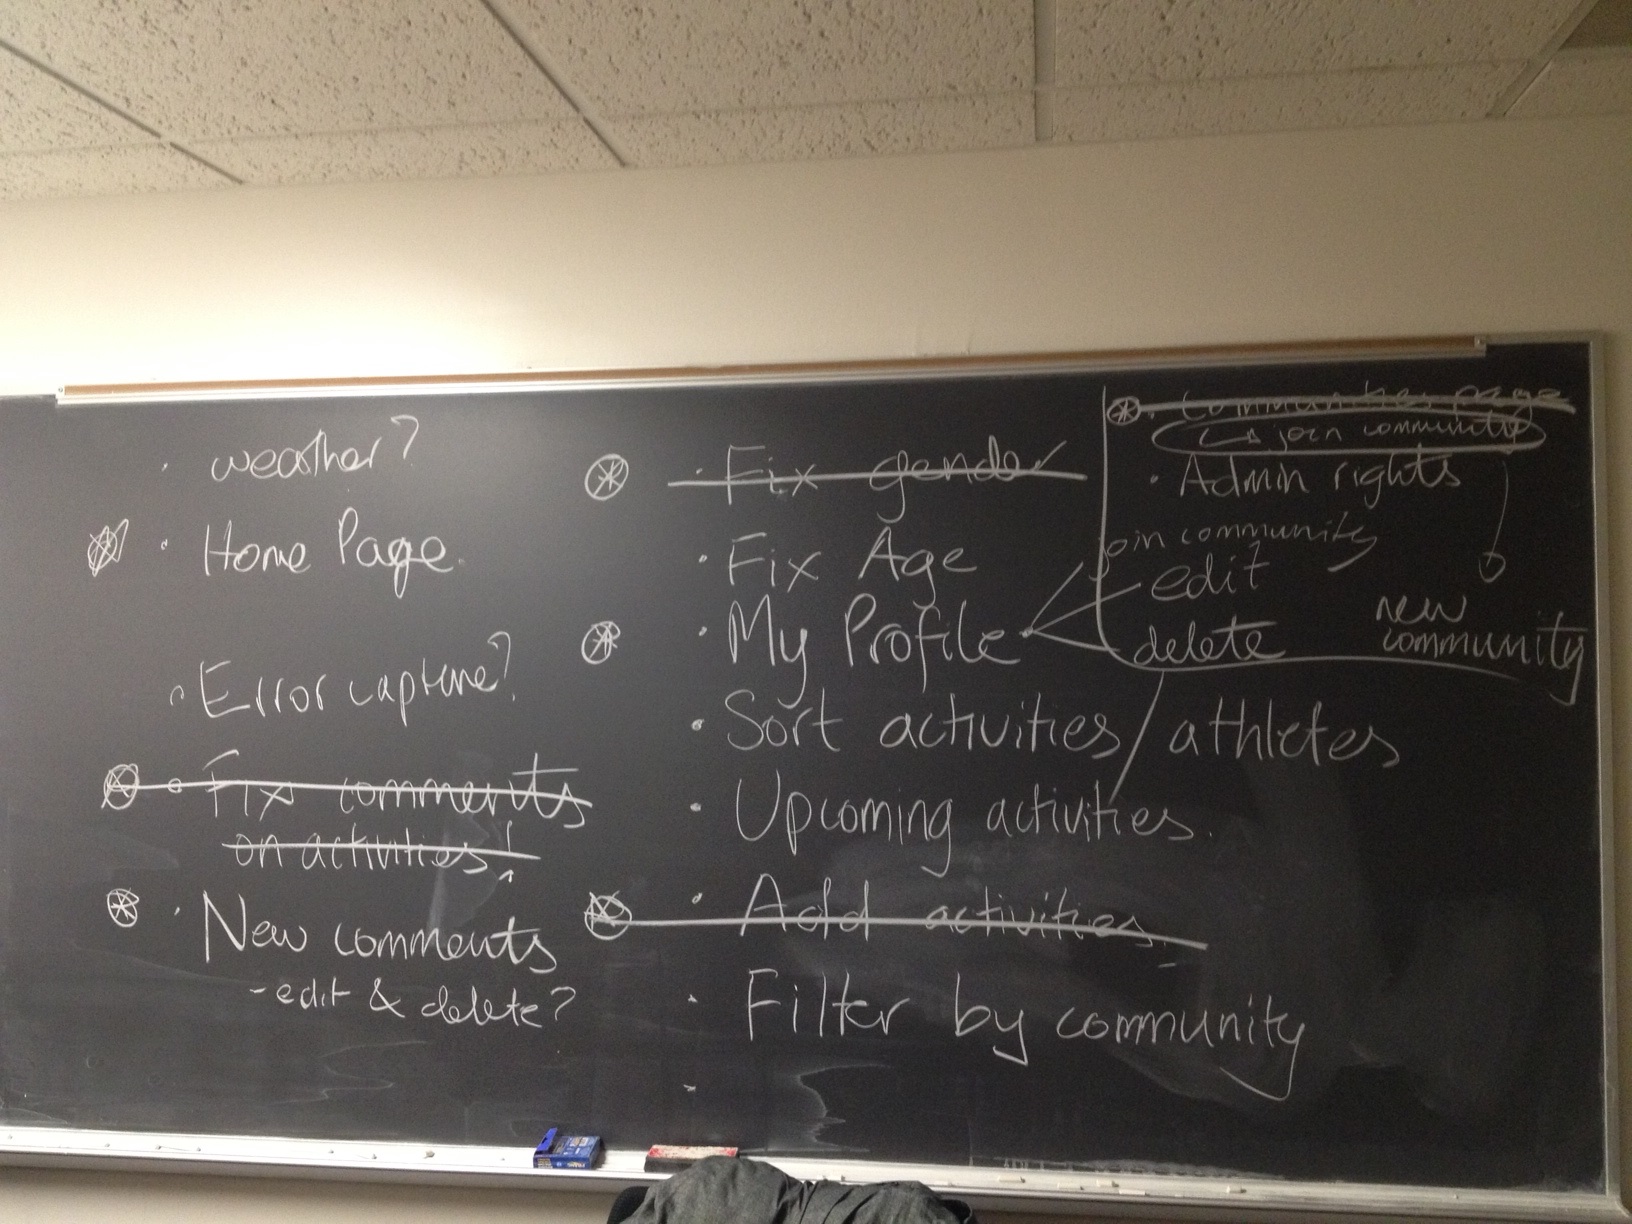 · weather?
· Home Page
· Error capture?
· Fix comments
on activities
· New comments
- edit & delete?
· Fix gender
· Fix Age
· My Profile
· Sort activities / athletes
· Upcoming activities
· Add activities
· Filter by community
· Communities page
↳ join community
· Admin rights
join community
edit
delete
new
community